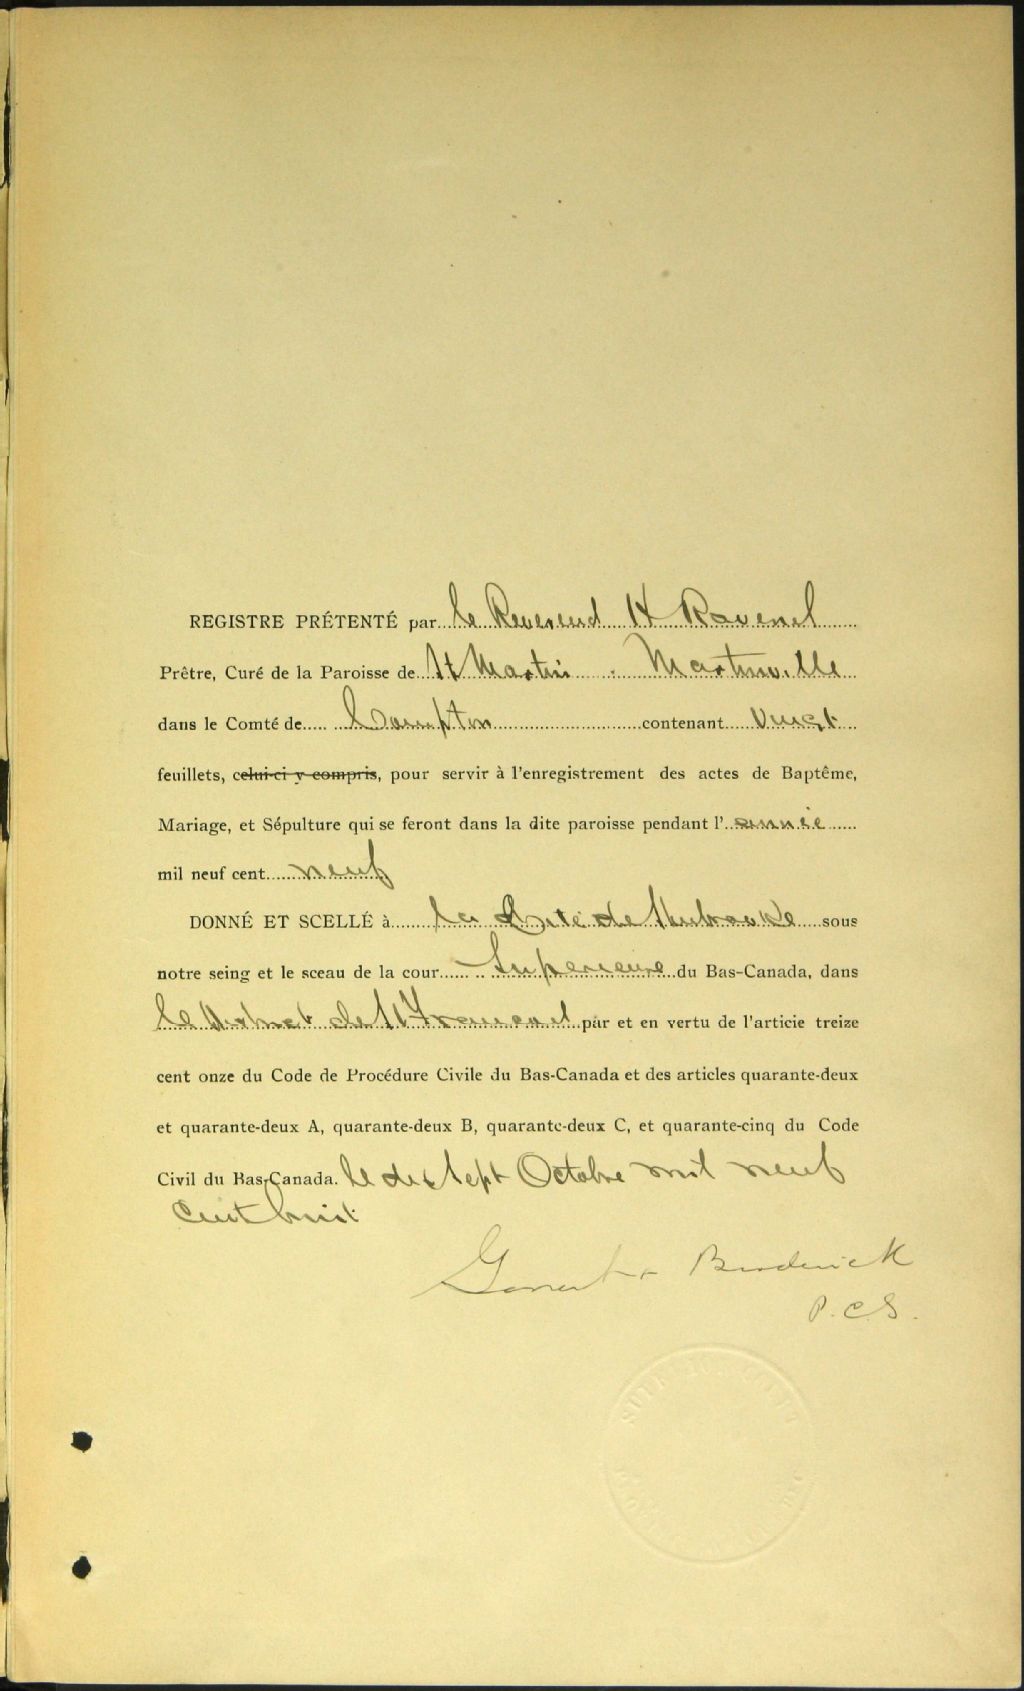 REGISTRE PRÉTENTÉ par le Reverend H Ravenel
Prêtre, Curé de la Paroisse de St Martin . Martinville
dans le Comté de Compton contenant vingt
feuillets, celui-ci y compris, pour servir à l'enregistrement des actes de Baptême,
Mariage, et Sépulture qui se feront dans la dite paroisse pendant l'année
mil neuf cent neuf
DONNÉ ET SCELLÉ à la Cité de Sherbrooke sous
notre seing et le sceau de la cour Superieure du Bas-Canada, dans
le District de St Francois par et en vertu de l'articie treize
cent onze du Code de Procédure Civile du Bas-Canada et des articles quarante-deux
et quarante-deux A, quarante-deux B, quarante-deux C, et quarante-cinq du Code
Civil du Bas-Canada. le dix sept Octobre mil neuf
cent huit
Broderick
P.C.S.
SUPERIOR COURT